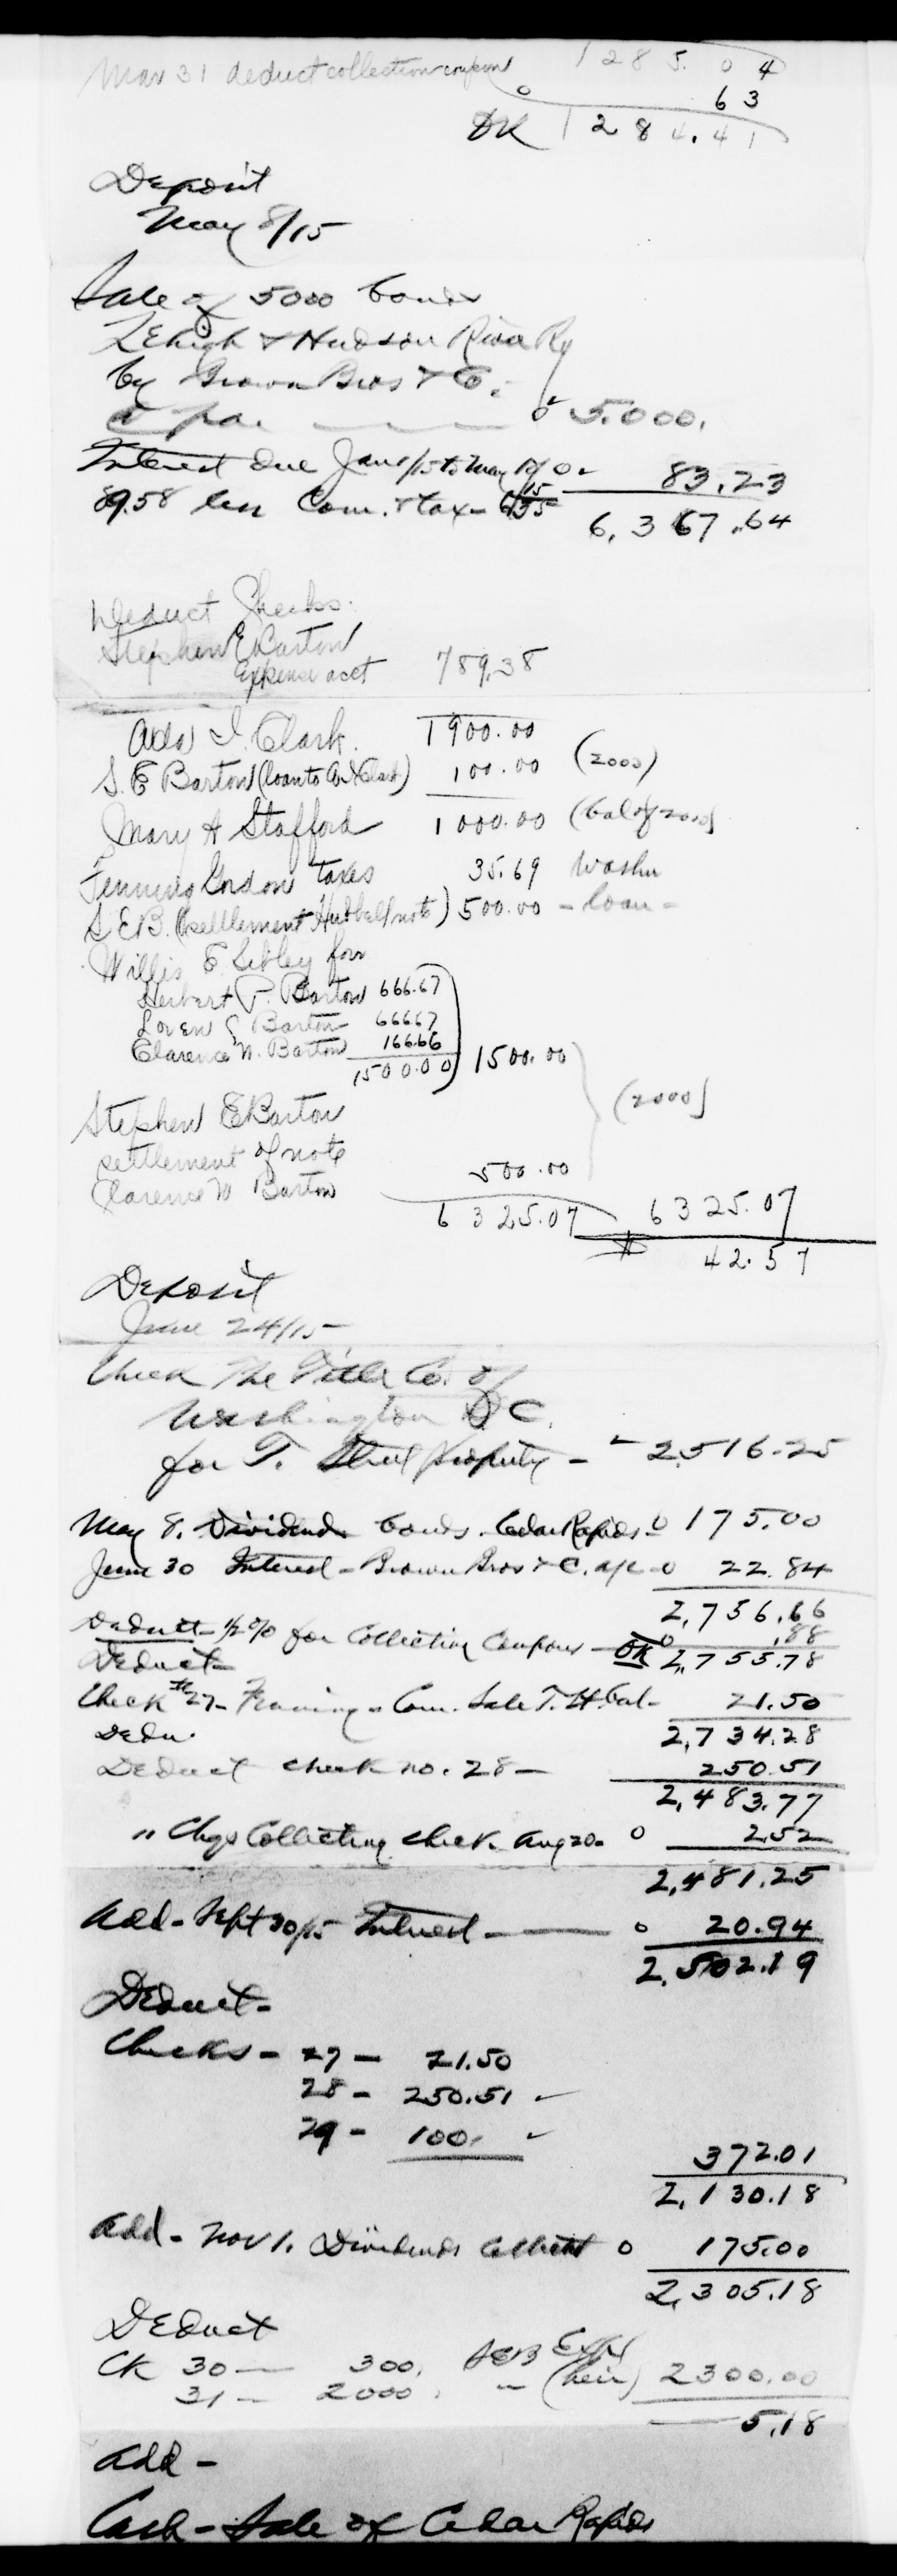 Mar 31 deduct collection coupons 1285.04
0 63
OK 1284.41
Deposit
May 8/15
Sale of 5000 bonds
Lehigh & Hudson River Ry
by Brown Bros & Co.
a par — — 0 5.000.
Interest due Jan 1/15 to May 10/15 0 - 83.23
89.58 less Com. & tax - 6.35 6,367.64
Deduct Checks.
Stephen E Barton
Expense acct 789.38
Ada I. Clark. 1900.00
S. E Barton (loan to A I Clark) 100.00 (2000)
Mary A Stafford 1000.00 (bal of 2000)
Fenning Gordon taxes 35.69 Washn
S E B. (settlement Hubbell note) 500.00 - loan -
Willis E Sibley for
Herbert P. Barton 666.67
Loven S Barton 666.67
Clarence W. Barton 166.66
1500.00 1500.00
(2000)
Stephen E Barton
settlement of note
Clarence W Barton 500.00
6325.07 6325.07
$ 42.57
Deposit
June 24/15
Check The Title Co. of
Washington D C.
for T. Street property - 2516.25
May 8. Dividends bonds. Cedar Rapids - 0 175.00
June 30 Interest - Brown Bros & C. a/c - 0 22.84
2,756.66
Deduct - 1/2 % for Collecting Coupons - 0 .88
Deduct - OK 2,755.78
Check #27 - Framing - Com. Sale T. St. bal - 21.50
Dedu. 2,734.28
Deduct check no. 28 - 250.51
2,483.77
" Chgs Collecting check. Aug 20 - 0 2.52
2,481.25
Add - Sept 30/15 Interest - 0 20.94
2,502.19
Deduct -
Checks - 27 - 21.50
28 - 250.51
29 - 100.
372.01
2,130.18
Add - Nov 1. Dividends Collected 0 175.00
2,305.18
Deduct
CK 30 — 300. SEB Exp
31 — 2000. " (heir) 2300.00
5.18
Add -
Cash - Sale of Cedar Rapids